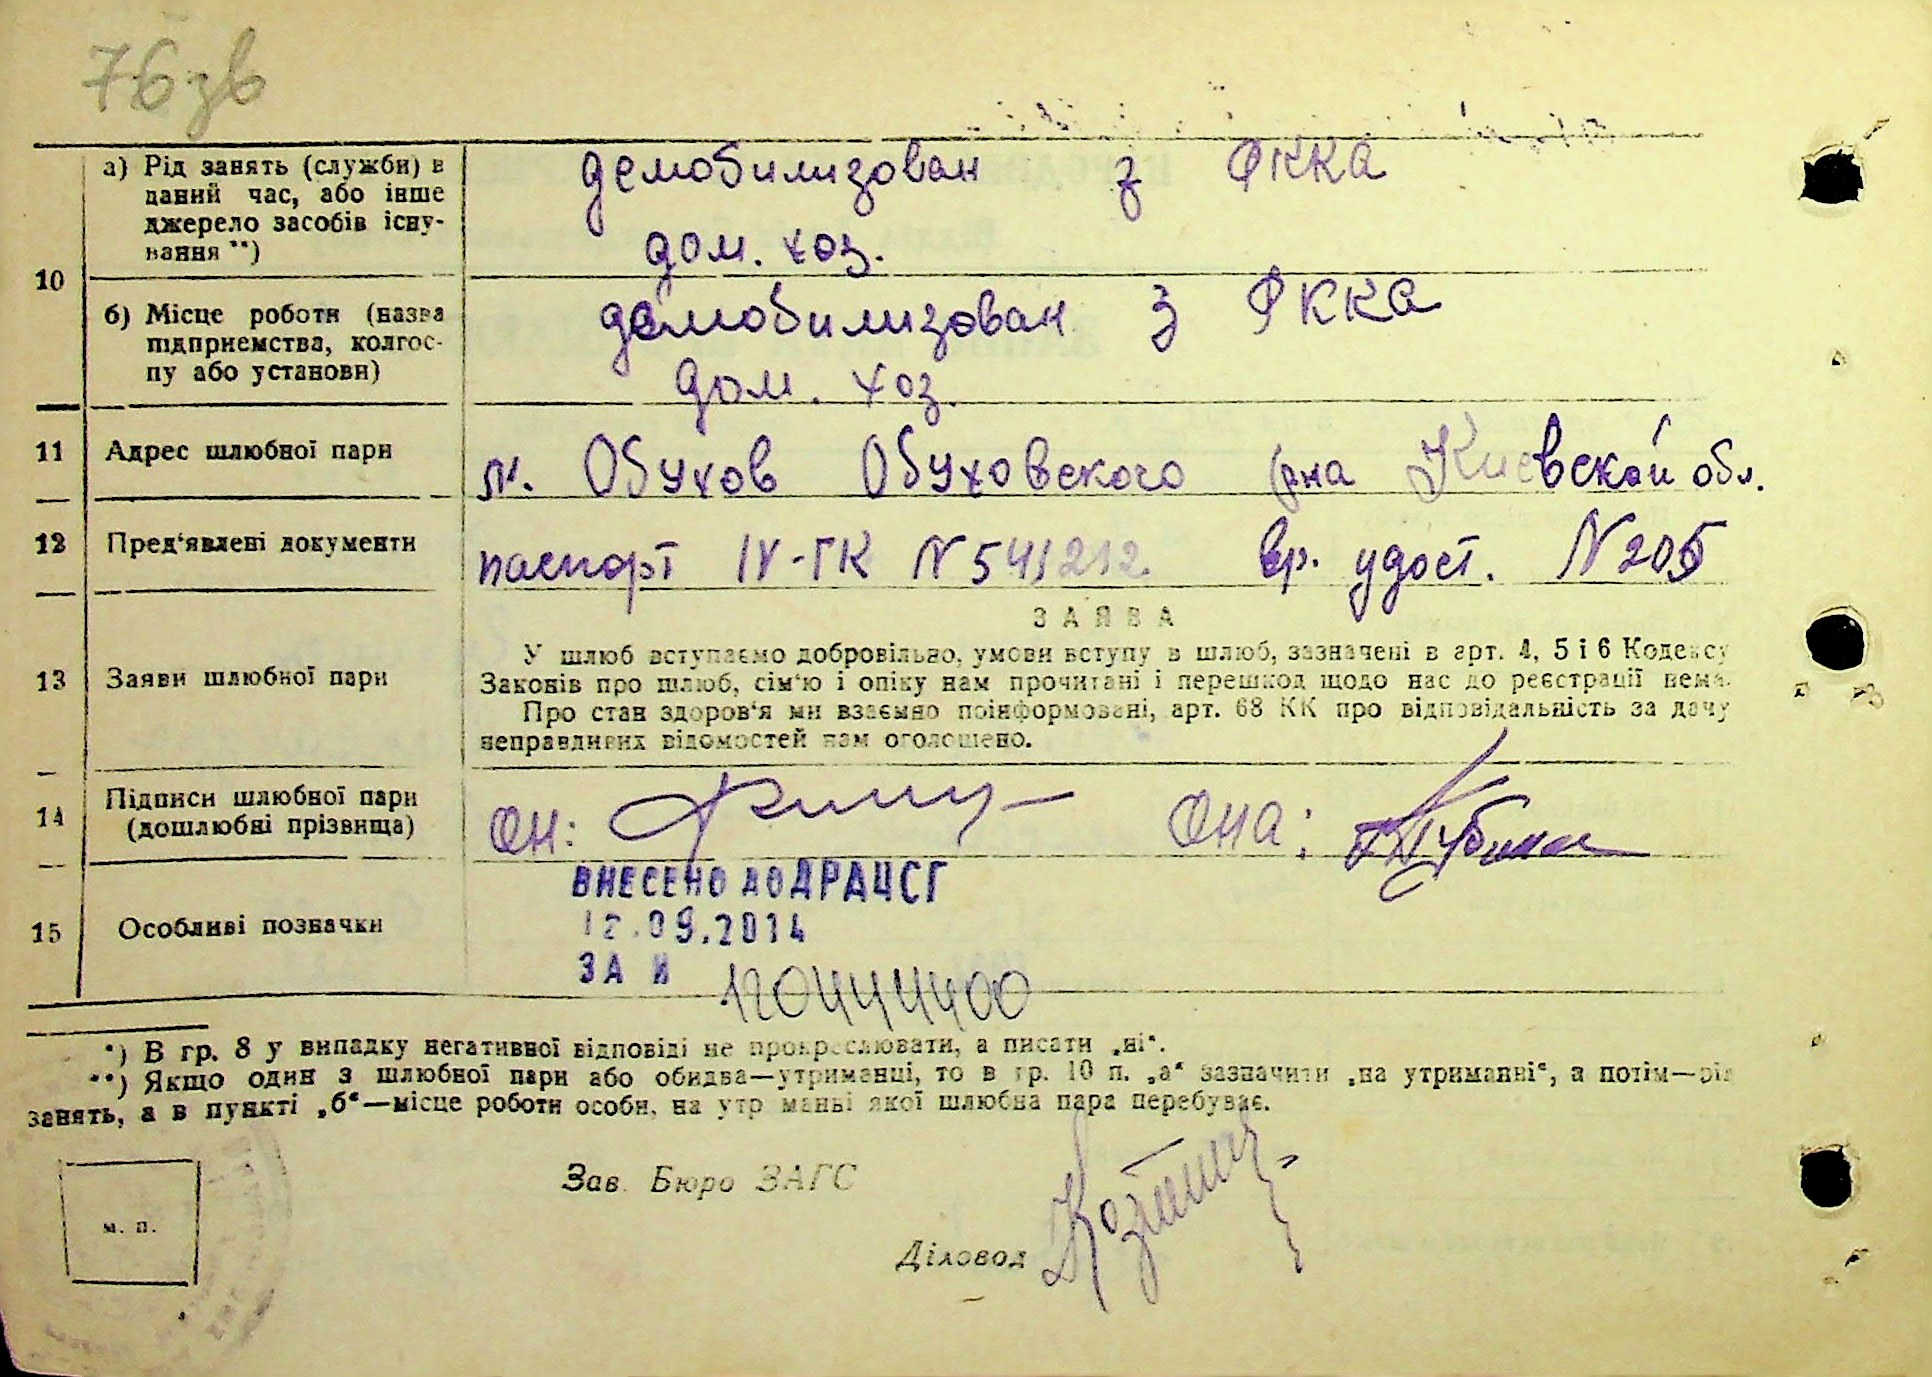 76 зв
а) Рід занять (служби) в
даний час, або інше
джерело засобів існу-
вання **)
демобилизован з РККА
дом. хоз.
10
б) Місце роботи (назва
підприємства, колгос-
пу або установи)
демобилизован з РККА
дом. хоз.
11 Адрес шлюбної пари м. Обухов Обуховского р-на Киевской обл.
12 Пред'явлені документи паспорт IV-ГК N 541212. вр. удост. N 205
ЗАЯВА
13 Заяви шлюбної пари
У шлюб вступаємо добровільно, умови вступу в шлюб, зазначені в арт. 4, 5 і 6 Кодексу
Законів про шлюб, сім'ю і опіку нам прочитані і перешкод щодо нас до реєстрації нема.
Про стан здоров'я ми взаємно поінформовані, арт. 68 КК про відповідальність за дачу
неправдивих відомостей нам оголошено.
14 Підписи шлюбної пари
(дошлюбні прізвища)
Он: Она:
15 Особливі позначки
ВНЕСЕНО ДО ДРАЦСГ
12.09.2014
ЗА N 1204444400
*) В гр. 8 у випадку негативної відповіді не прокреслювати, а писати „ні“.
**) Якщо один з шлюбної пари або обидва—утриманці, то в гр. 10 п. „а“ зазначити „на утриманні“, а потім—рід
занять, а в пункті „б“—місце роботи особи, на утриманні якої шлюбна пара перебуває.
Зав. Бюро ЗАГС
м. п.
Діловод